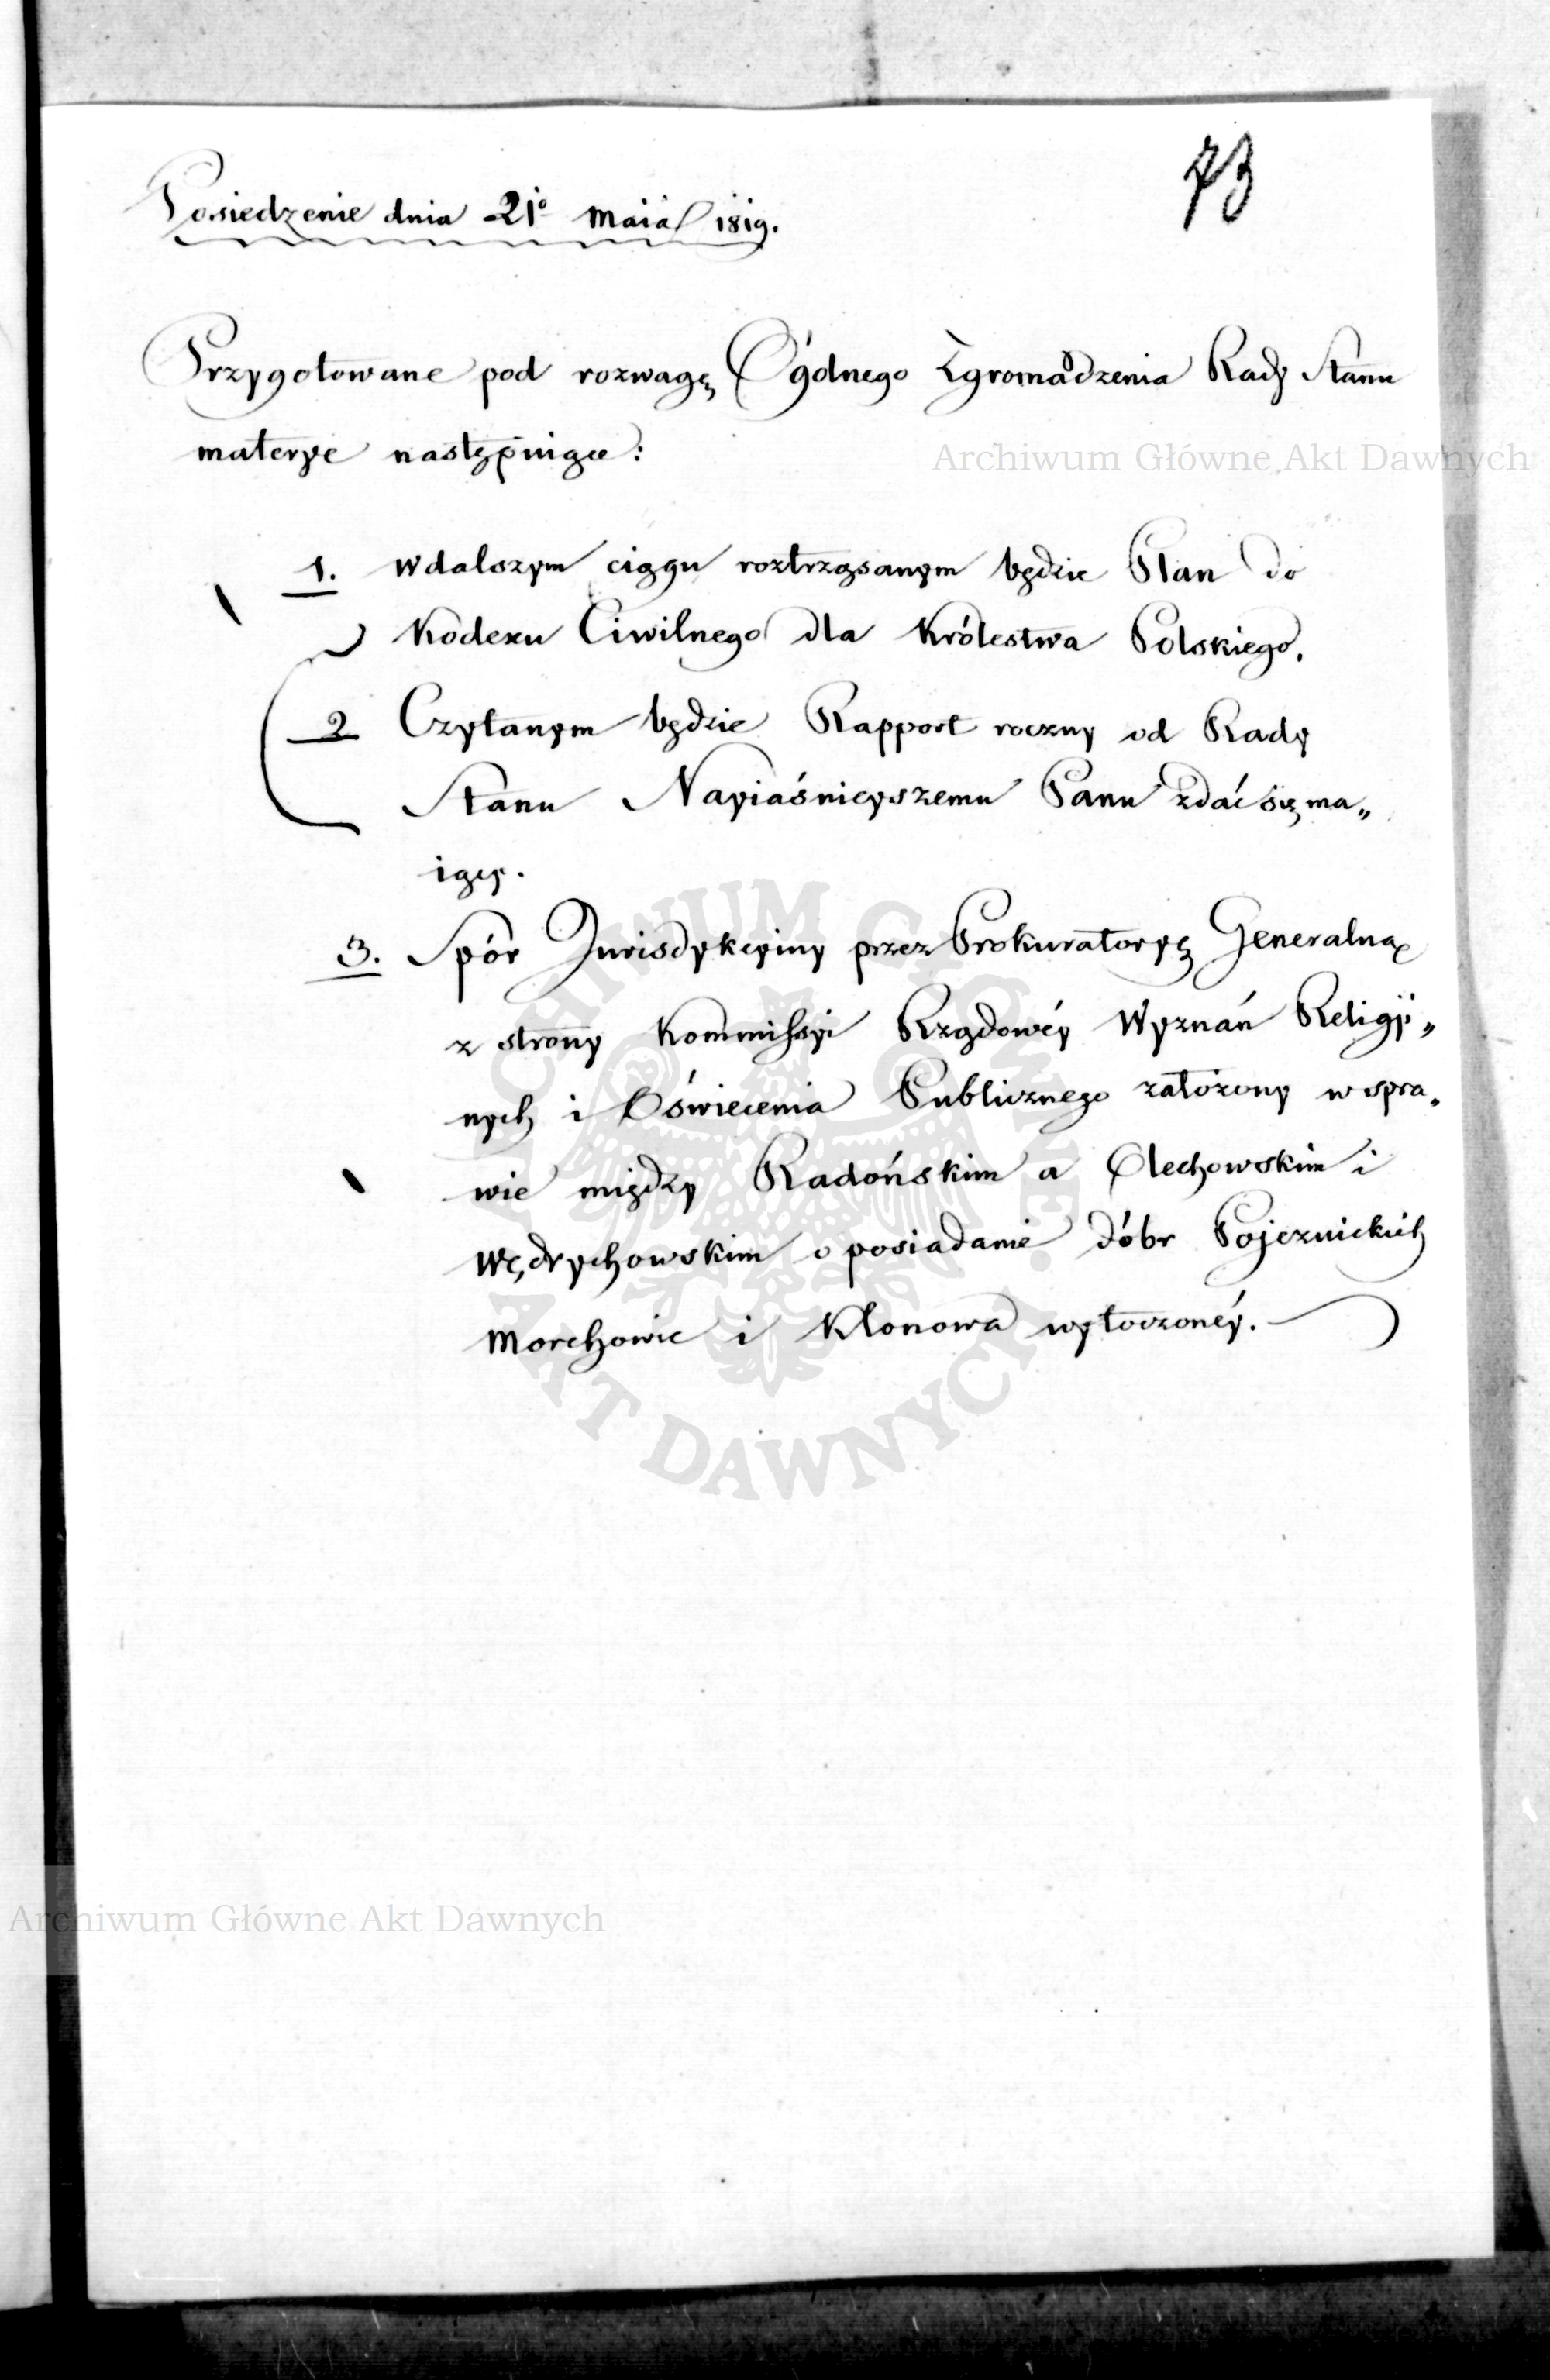 73
Posiedzenie dnia 21º Maia 1819.
Przygotowane pod rozwagę Ogólnego Zgromadzenia Rady Stanu
materye następuiące:
Archiwum Główne Akt Dawnych
1. W dalszym ciągu roztrząsanym będzie Plan do
Kodexu Ciwilnego dla Królestwa Polskiego.
2 Czytanym będzie Rapport roczny od Rady
Stanu Nayiaśnieyszemu Panu zdać się ma„
iący.
3. Spór Jurisdykcyiny przez Prokuratoryę Generalną
z strony Kommissyi Rządowéy Wyznań Religij„
nych i Oświecenia Publicznego założony w spra„
wie między Radońskim a Olechowskim i
Wędrychowskim o posiadanie dóbr
i Klonowa wytoczonéy.
ARCHIWUM GŁÓWNE AKT DAWNYCH
Archiwum Główne Akt Dawnych